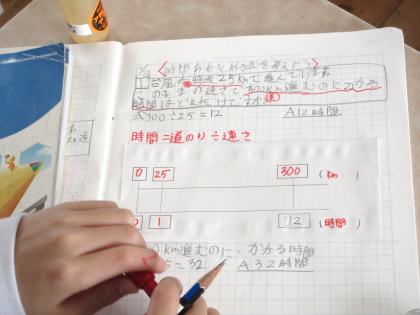 〈時間をもとめる式を考えよう〉
台風は時速25kmで進んでいます。
このままの速さで300km進むのにかかる
時間はどれだけですか
式300÷25=12 A 12時間
時間=道のり÷速さ
0 25 300 (km)
0 1 12 (時間)
km進むのに、かかる時間
5=32 A 32時間